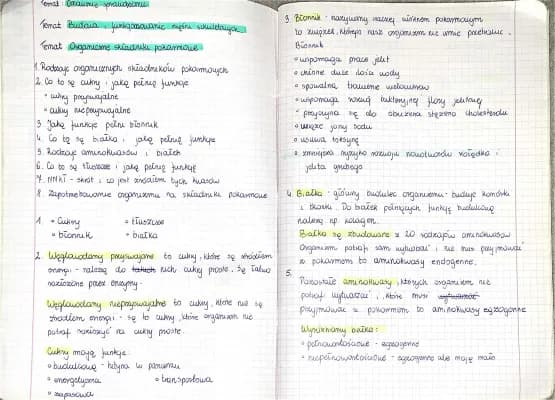 Temat: Ocenianie sprawdzianu
Temat: Budowa i funkcjonowanie mięśni szkieletowych
Temat: Organiczne składniki pokarmowe
1. Rodzaje organicznych składników pokarmowych
2. Co to są cukry i jakie pełnią funkcje
• cukry przyswajalne
• cukry nieprzyswajalne
3. Jakie funkcje pełni błonnik
4. Co to są białka i jakie pełnią funkcje
5. Rodzaje aminokwasów i białek
6. Co to są tłuszcze i jakie pełnią funkcję
7. NNKT - skrót i co jest źródłem tych kwasów
8. Zapotrzebowanie organizmu na składniki pokarmowe
1. • Cukry • tłuszcze
• błonnik • białka
2. Węglowodany przyswajane to cukry, które są źródłem
energii - należą do takich nich cukry proste. Są łatwo
rozłożone przez enzymy.
Węglowodany nieprzyswajalne to cukry, które nie są
źródłem energii - są to cukry, które organizm nie
potrafi rozłożyć na cukry proste.
Cukry mają funkcje:
• budulcową - chityna w pancerzu
• energetyczna • transportowa
• zapasowa
3. Błonnik - nazywamy inaczej włóknem pokarmowym
to związek, którego nasz organizm nie umie przetrawić.
Błonnik
• wspomaga prace jelit
• chłonie duże ilości wody
• spowalnia trawienie węglowodanów
• wspomaga rozwój bakteryjnej flory jelitowej
• przyczynia się do obniżenia stężenia cholesterolu
• wiąże jony sodu
• usuwa toksyny
• zmniejsza ryzyko rozwoju nowotworów żołądka i
jelita grubego
4. Białka - główny budulec organizmu - buduje komórki
i tkanki. Do białek pełniących funkcję budulcową
należą np. kolagen.
Białka są zbudowane z 20 rodzajów aminokwasów
Organizm potrafi sam wytwarzać i nie musi przyjmować
z pokarmem to aminokwasy endogenne.
5.
Pozostałe aminokwasy, których organizm nie
potrafi wytwarzać i, które musi wytwarzać
przyjmować z pokarmem to aminokwasy egzogenne
Wyróżniamy białka:
• pełnowartościowe - egzogenne
• niepełnowartościowe - egzogenne ale mają mało